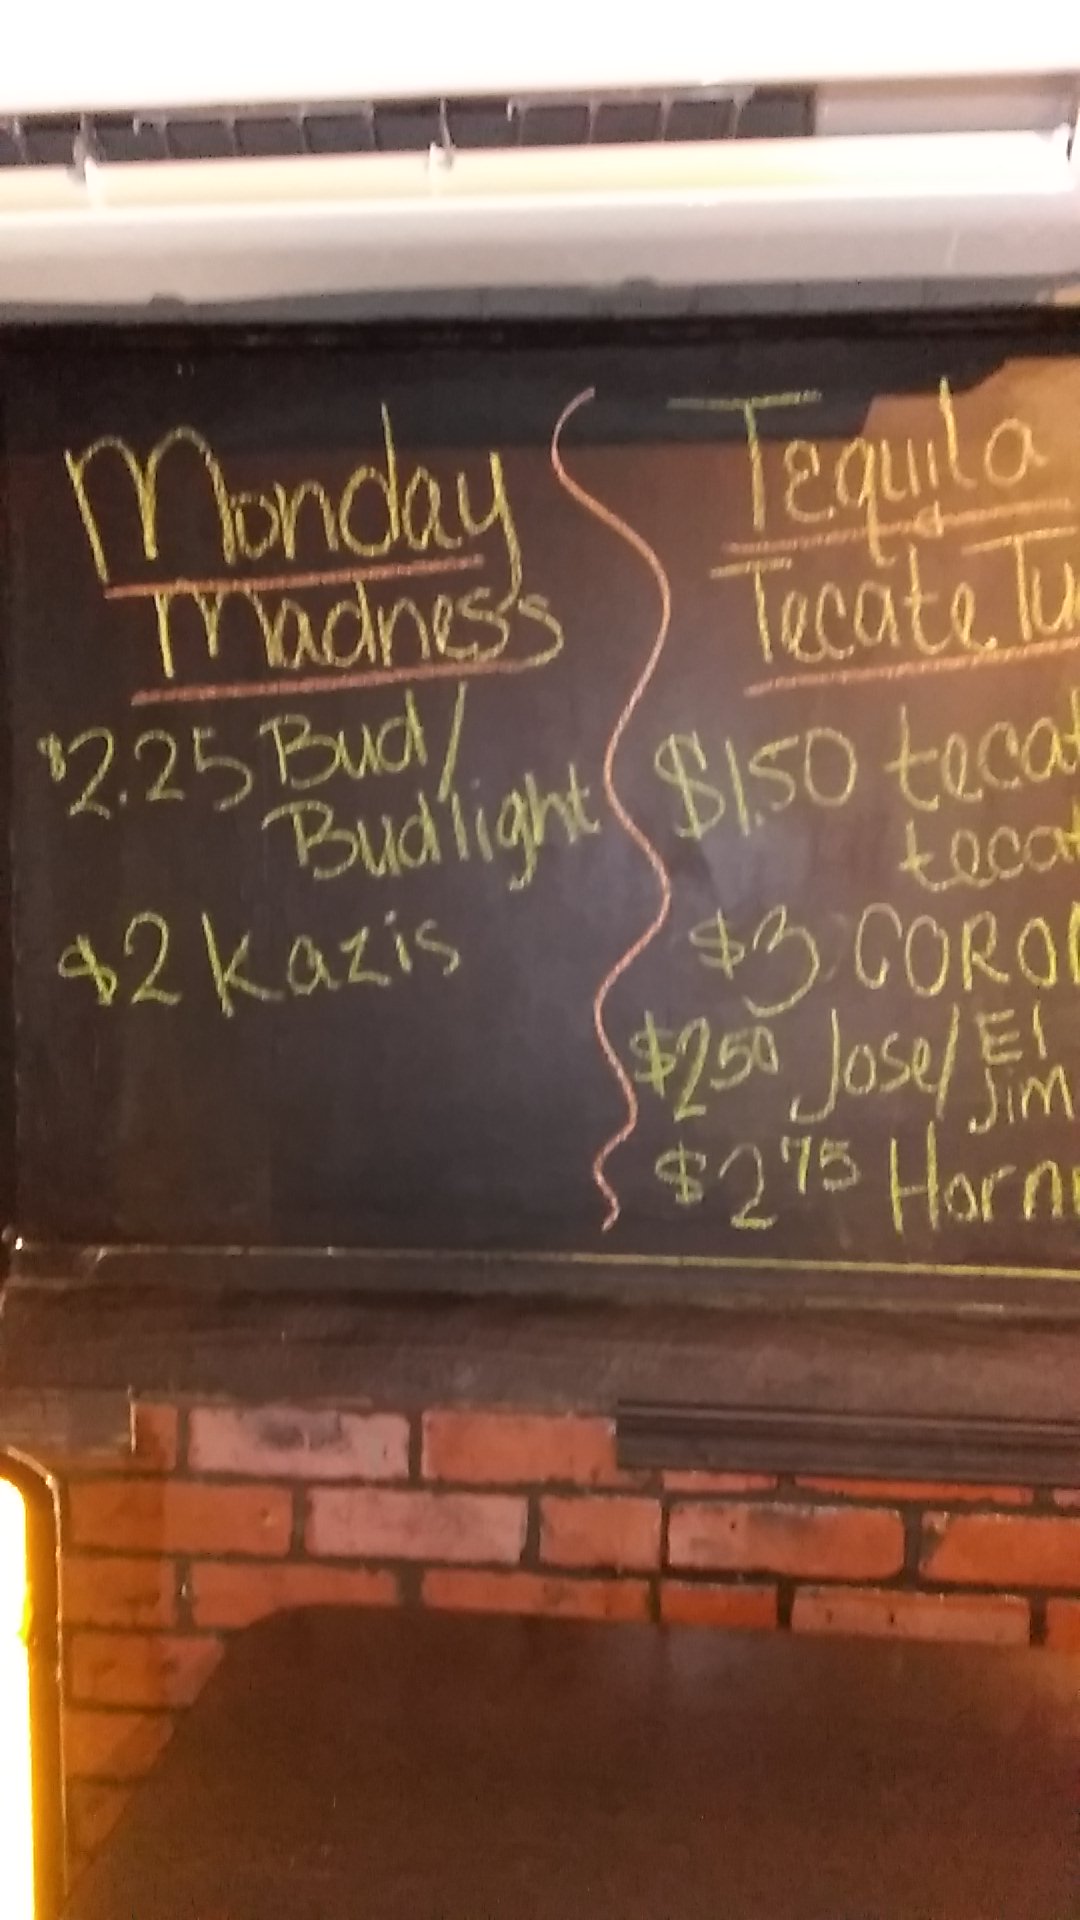 Monday
Madness
$2.25 Bud/
Budlight
$2 Kazis
Tequila
Tecate Tu
$1.50 tecat
tecat
$3 CORON
$2.50 Jose/ El
Jim
$2.75 Horn